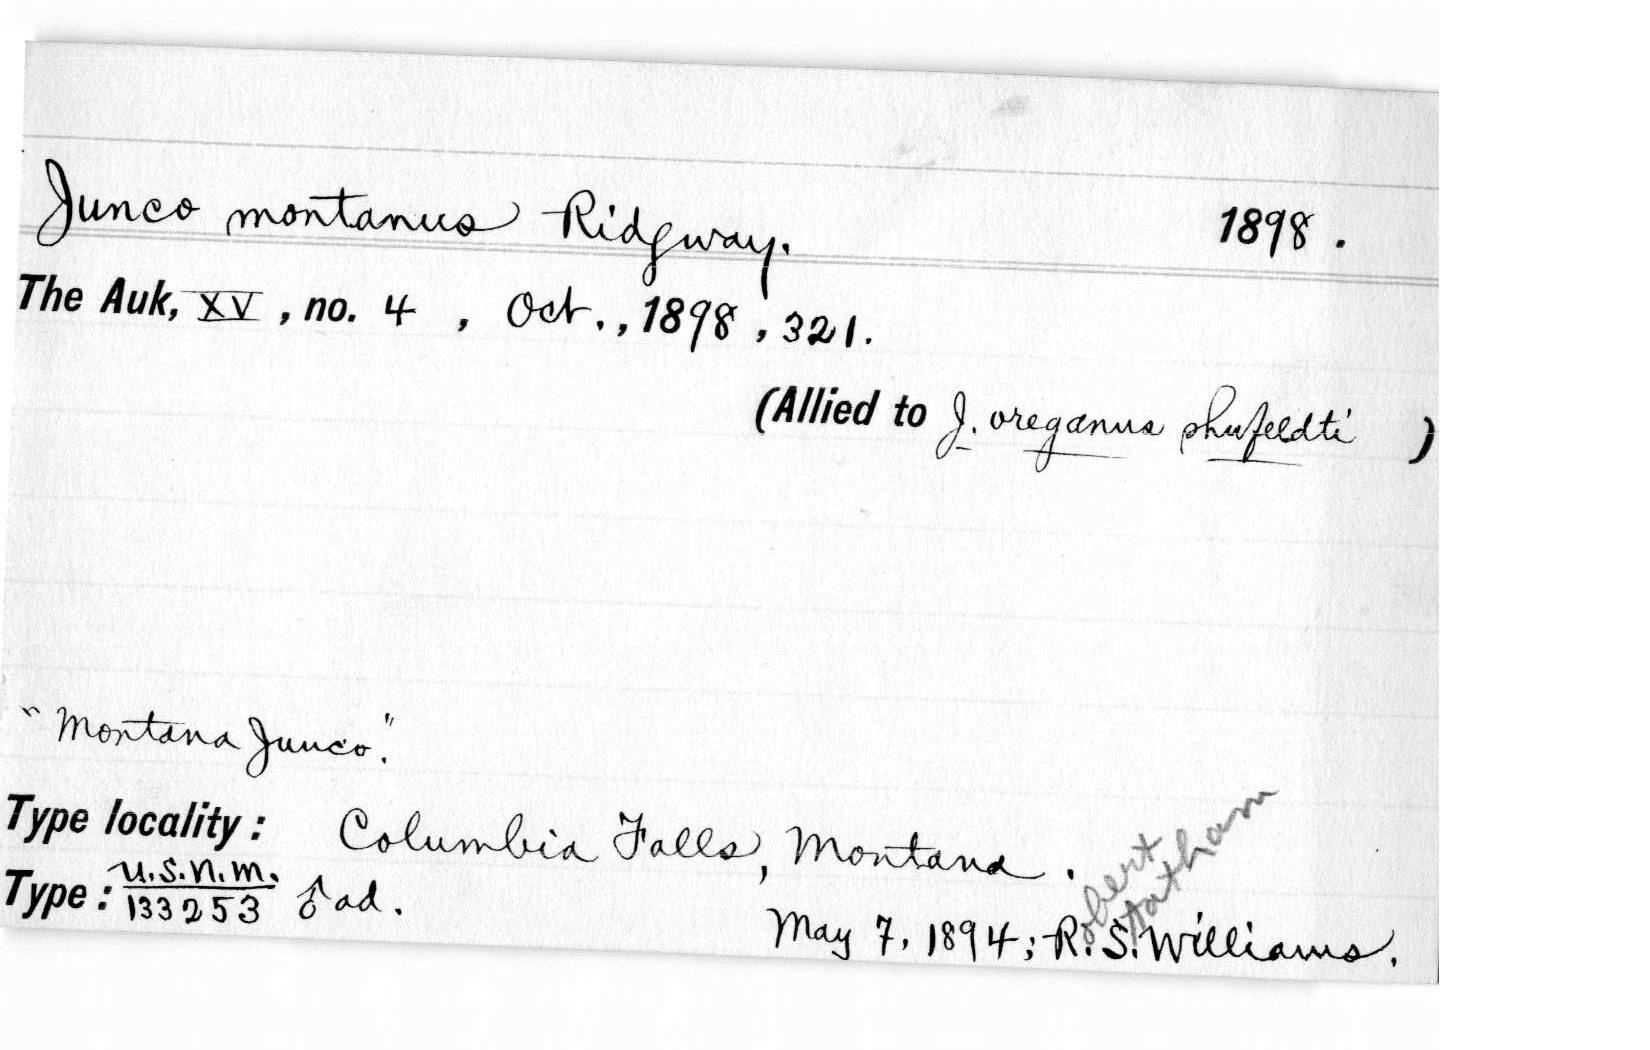 Junco montanus Ridgway. 1898.
The Auk, XV, no. 4, Oct., 1898, 321.
(Allied to J. oreganus shufeldti )
"Montana Junco."
Type locality: Columbia Falls, Montana.
Type: U.S.N.M. 133253 ♂ ad.
obert
tatham
May 7, 1894; R. S. Williams.